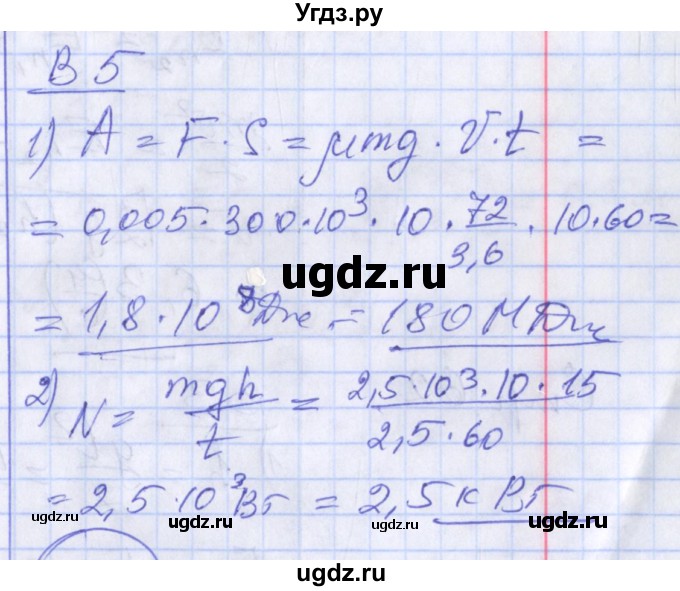 Угдз.ру
В 5
1) A = F · S = μmg · V · t =
= 0,005 · 300 · 10³ · 10 · 72/3,6 · 10 · 60 =
ugdz.ru
= 1,8 · 10⁸ Дж = 180 МДж
2) N = mgh/t = 2,5 · 10³ · 10 · 15/2,5 · 60
= 2,5 · 10³ Вт = 2,5 кВт
ugdz.ru ugdz.ru ugdz.ru ugdz.ru
ugdz.ru